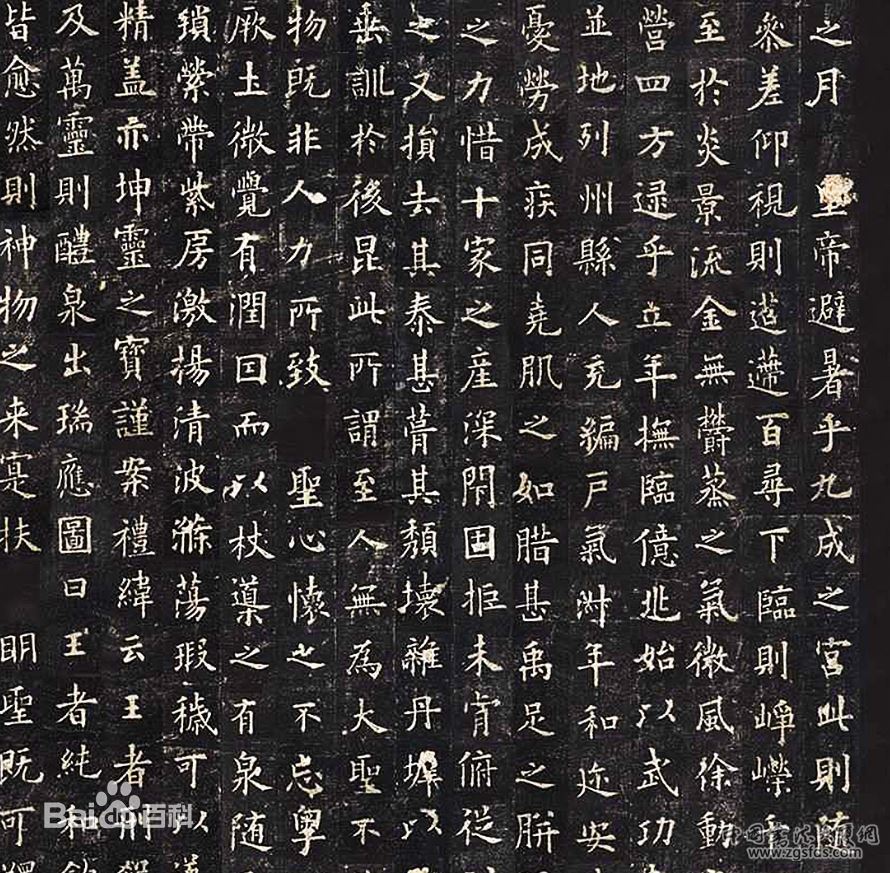 之月 皇帝避暑乎九成之宮此則随
叅差仰視則迢遰百尋下臨則崢嶸十
至於炎景流金無欝蒸之氣微風徐動
營四方逮乎立年撫臨億兆始以武功
並地列州縣人充編戸氣淑年和迩安
憂勞成疾同堯肌之如腊甚禹足之胼
之力惜十家之産深閇固拒未肯俯從
之又損去其泰甚葺其頽壊雜丹墀以
垂訓於後昆此所謂至人無為大聖不
物既非人力所致 聖心懷之不忘粤
厥土微覺有潤因而以杖導之有泉随
瑣縈帶紫房激揚清波滌蕩瑕穢可以
精盖亦坤靈之寶謹案禮緯云王者刑
及萬靈則醴泉出瑞應圖曰王者純和
皆愈然則神物之来寔扶 明聖既可
Baidu百科
www.zgsfds.com